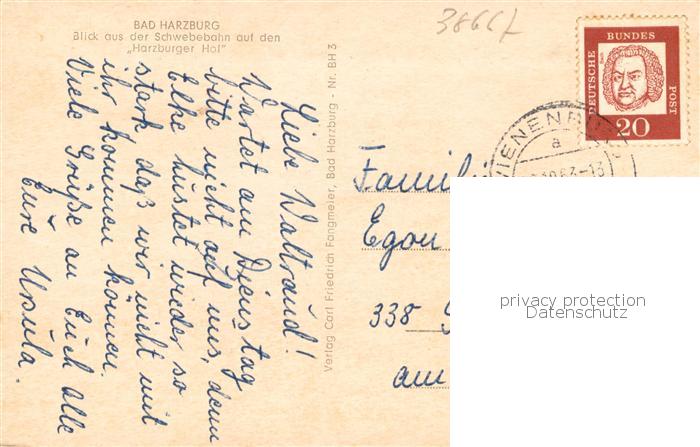 BAD HARZBURG
Blick aus der Schwebebahn auf den
„Harzburger Hof"
Liebe Waltraud!
Wartet am Dienstag
bitte nicht auf uns, denn
Elke hustet wieder so
stark daß wir nicht mit
ihr kommen können.
Viele Grüße an Euch alle
Eure Ursula.
Verlag Carl Friedrich Fangmeier, Bad Harzburg - Nr. BH 3
3866/
DEUTSCHE
BUNDES
POST
20
IENENB
a
63-13
Famili
Egon
338
am
privacy protection
Datenschutz